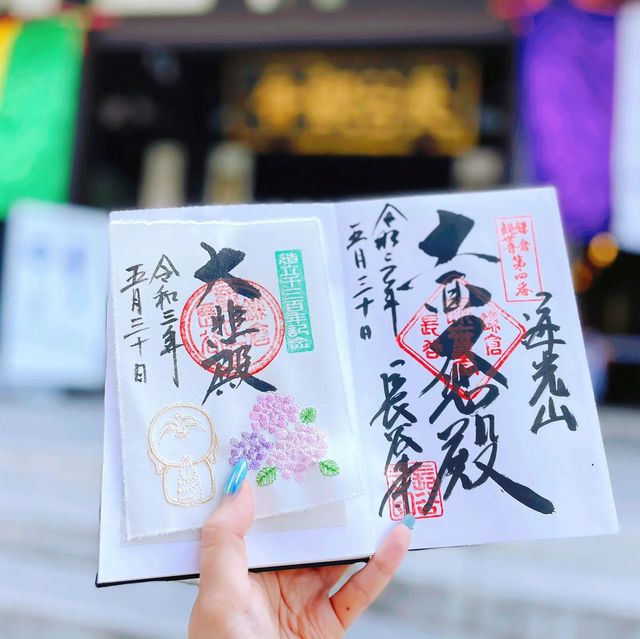 鎌倉
観音
第四番
海光山
大悲殿
長谷寺
令和三年
五月三十日
造立千三百年記念
大悲殿
令和三年
五月三十日